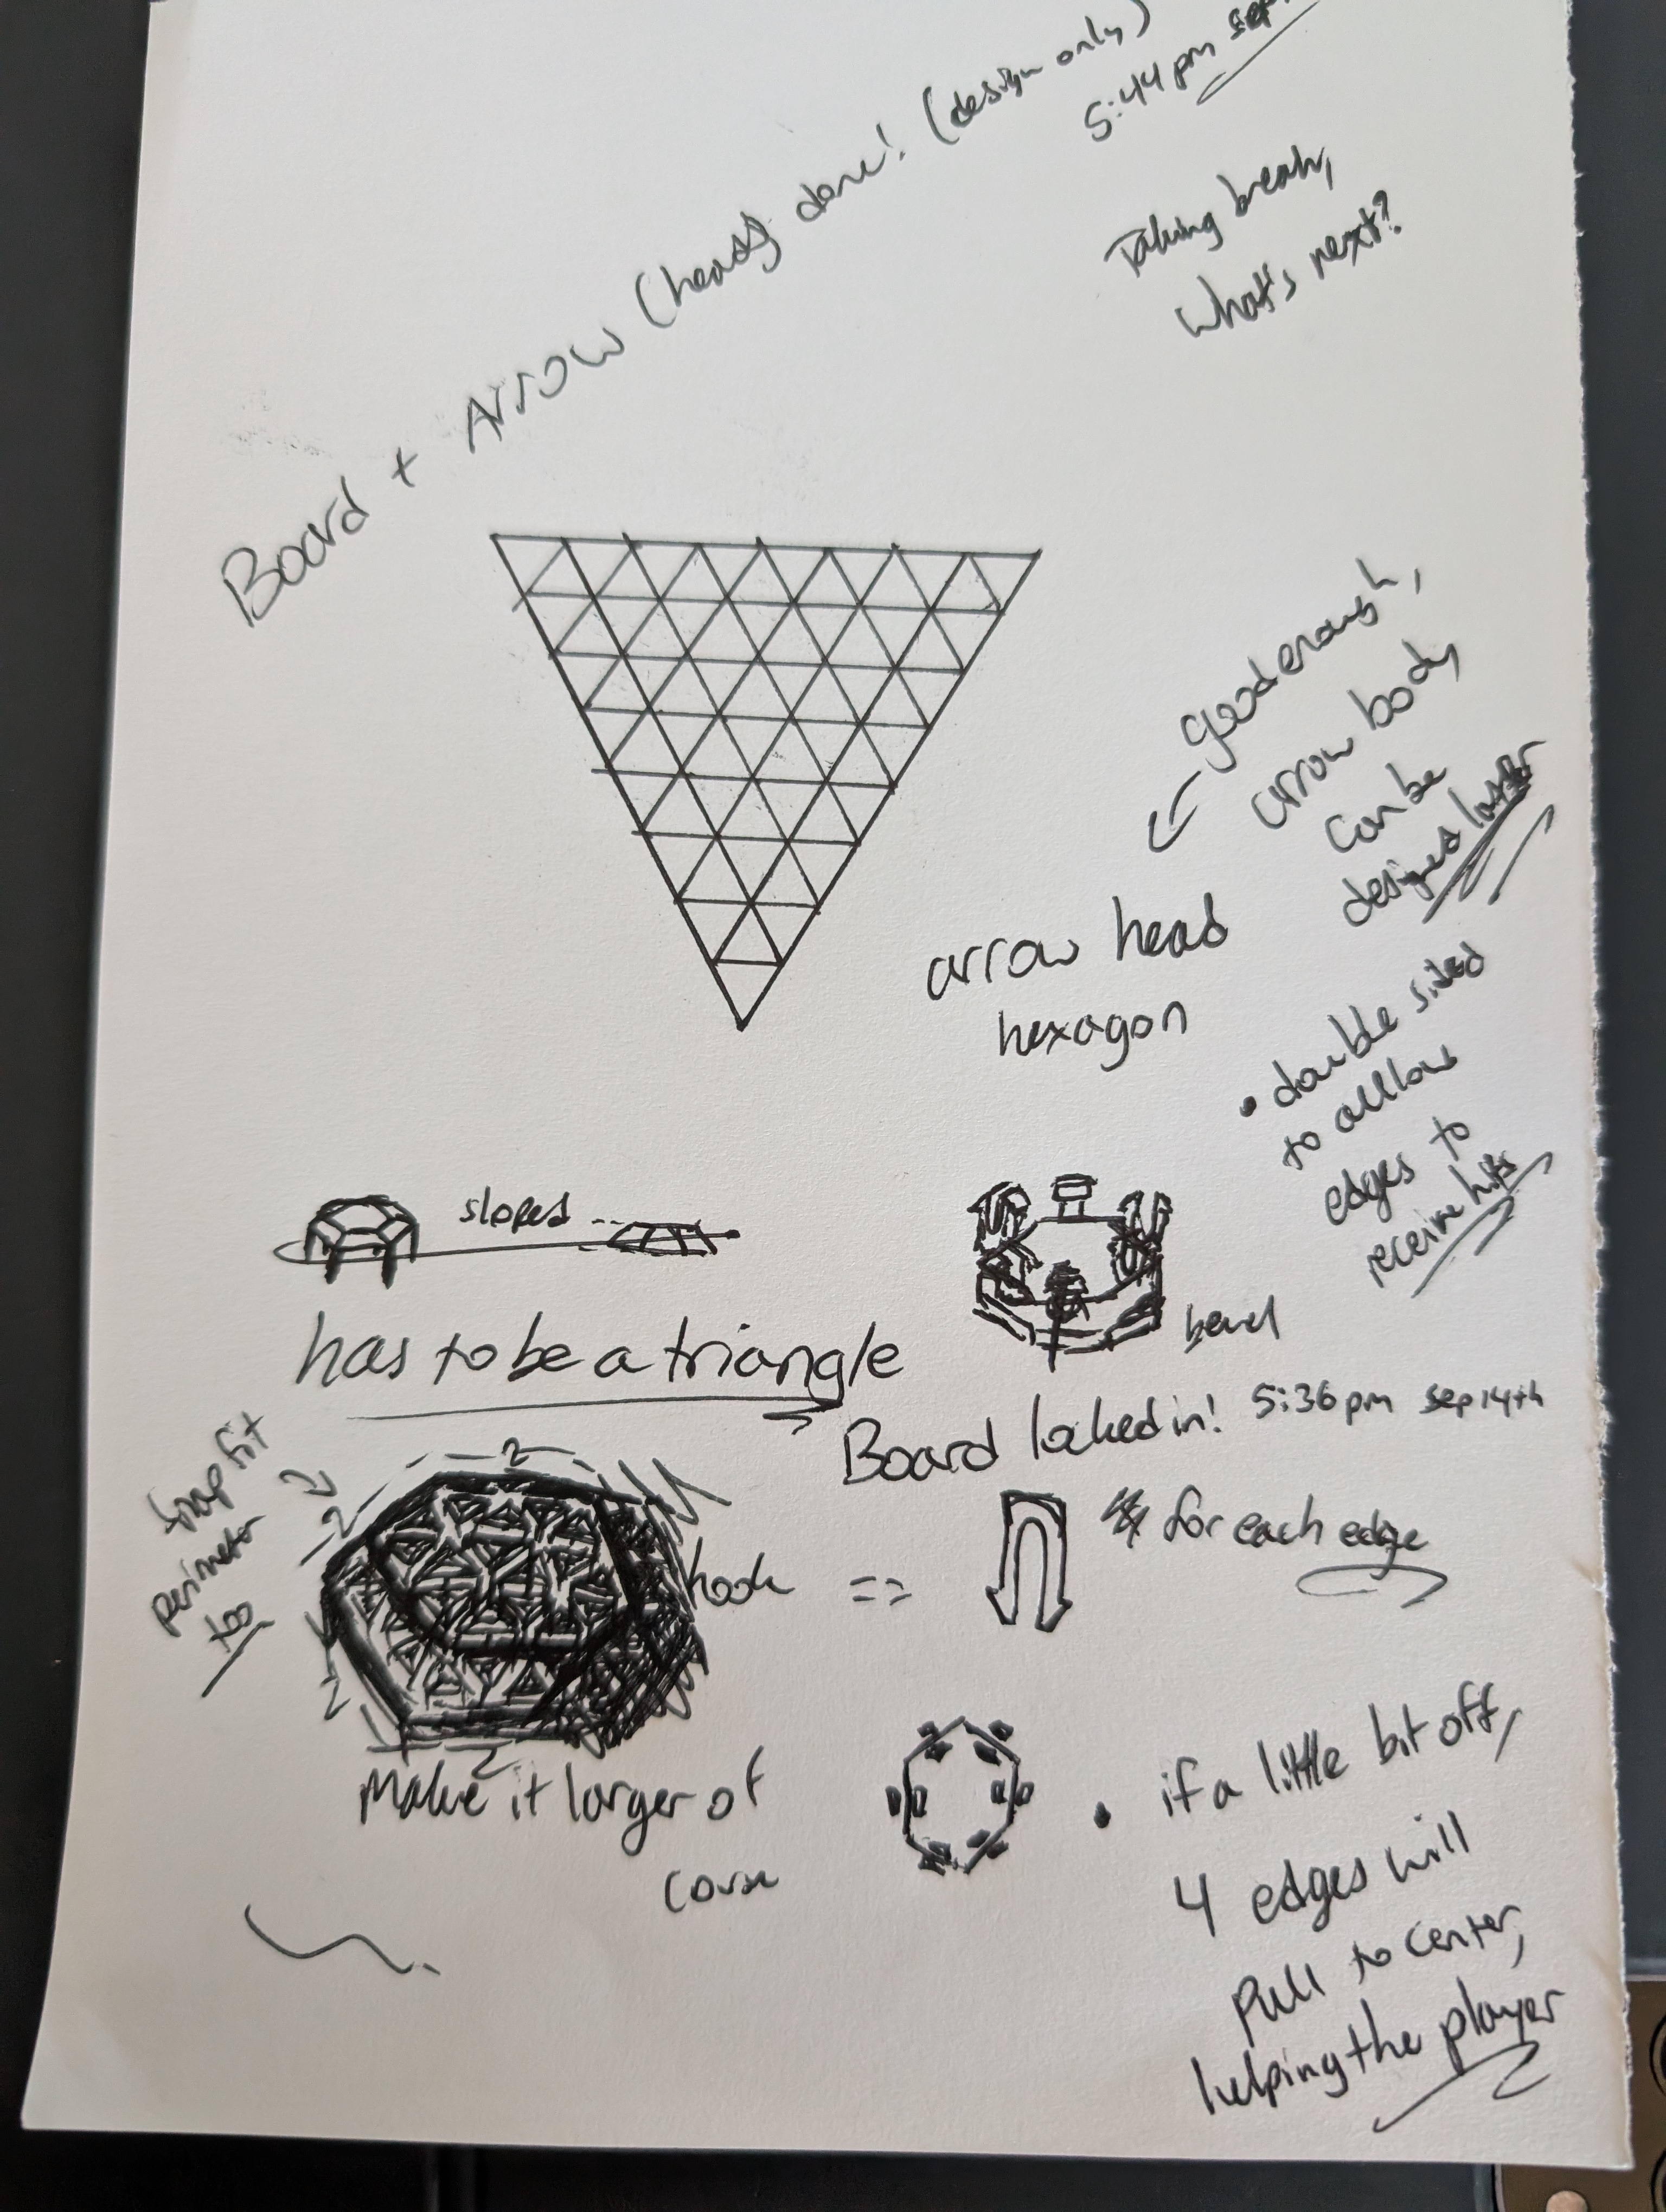 Board + Arrow (heads) done! (design only)
5:44pm sep
Taking break,
What's next?
good enough,
arrow body
can be
designed later
arrow head
hexagon
• double sided
to allow
edges to
receive hits
sloped
bevel
has to be a triangle
Board locked in! 5:36pm sep 14th
snap fit
perimeter
too
2
2
2
2
hook
==
for each edge
Make it larger of
course
• if a little bit off,
4 edges will
pull to center,
helping the player